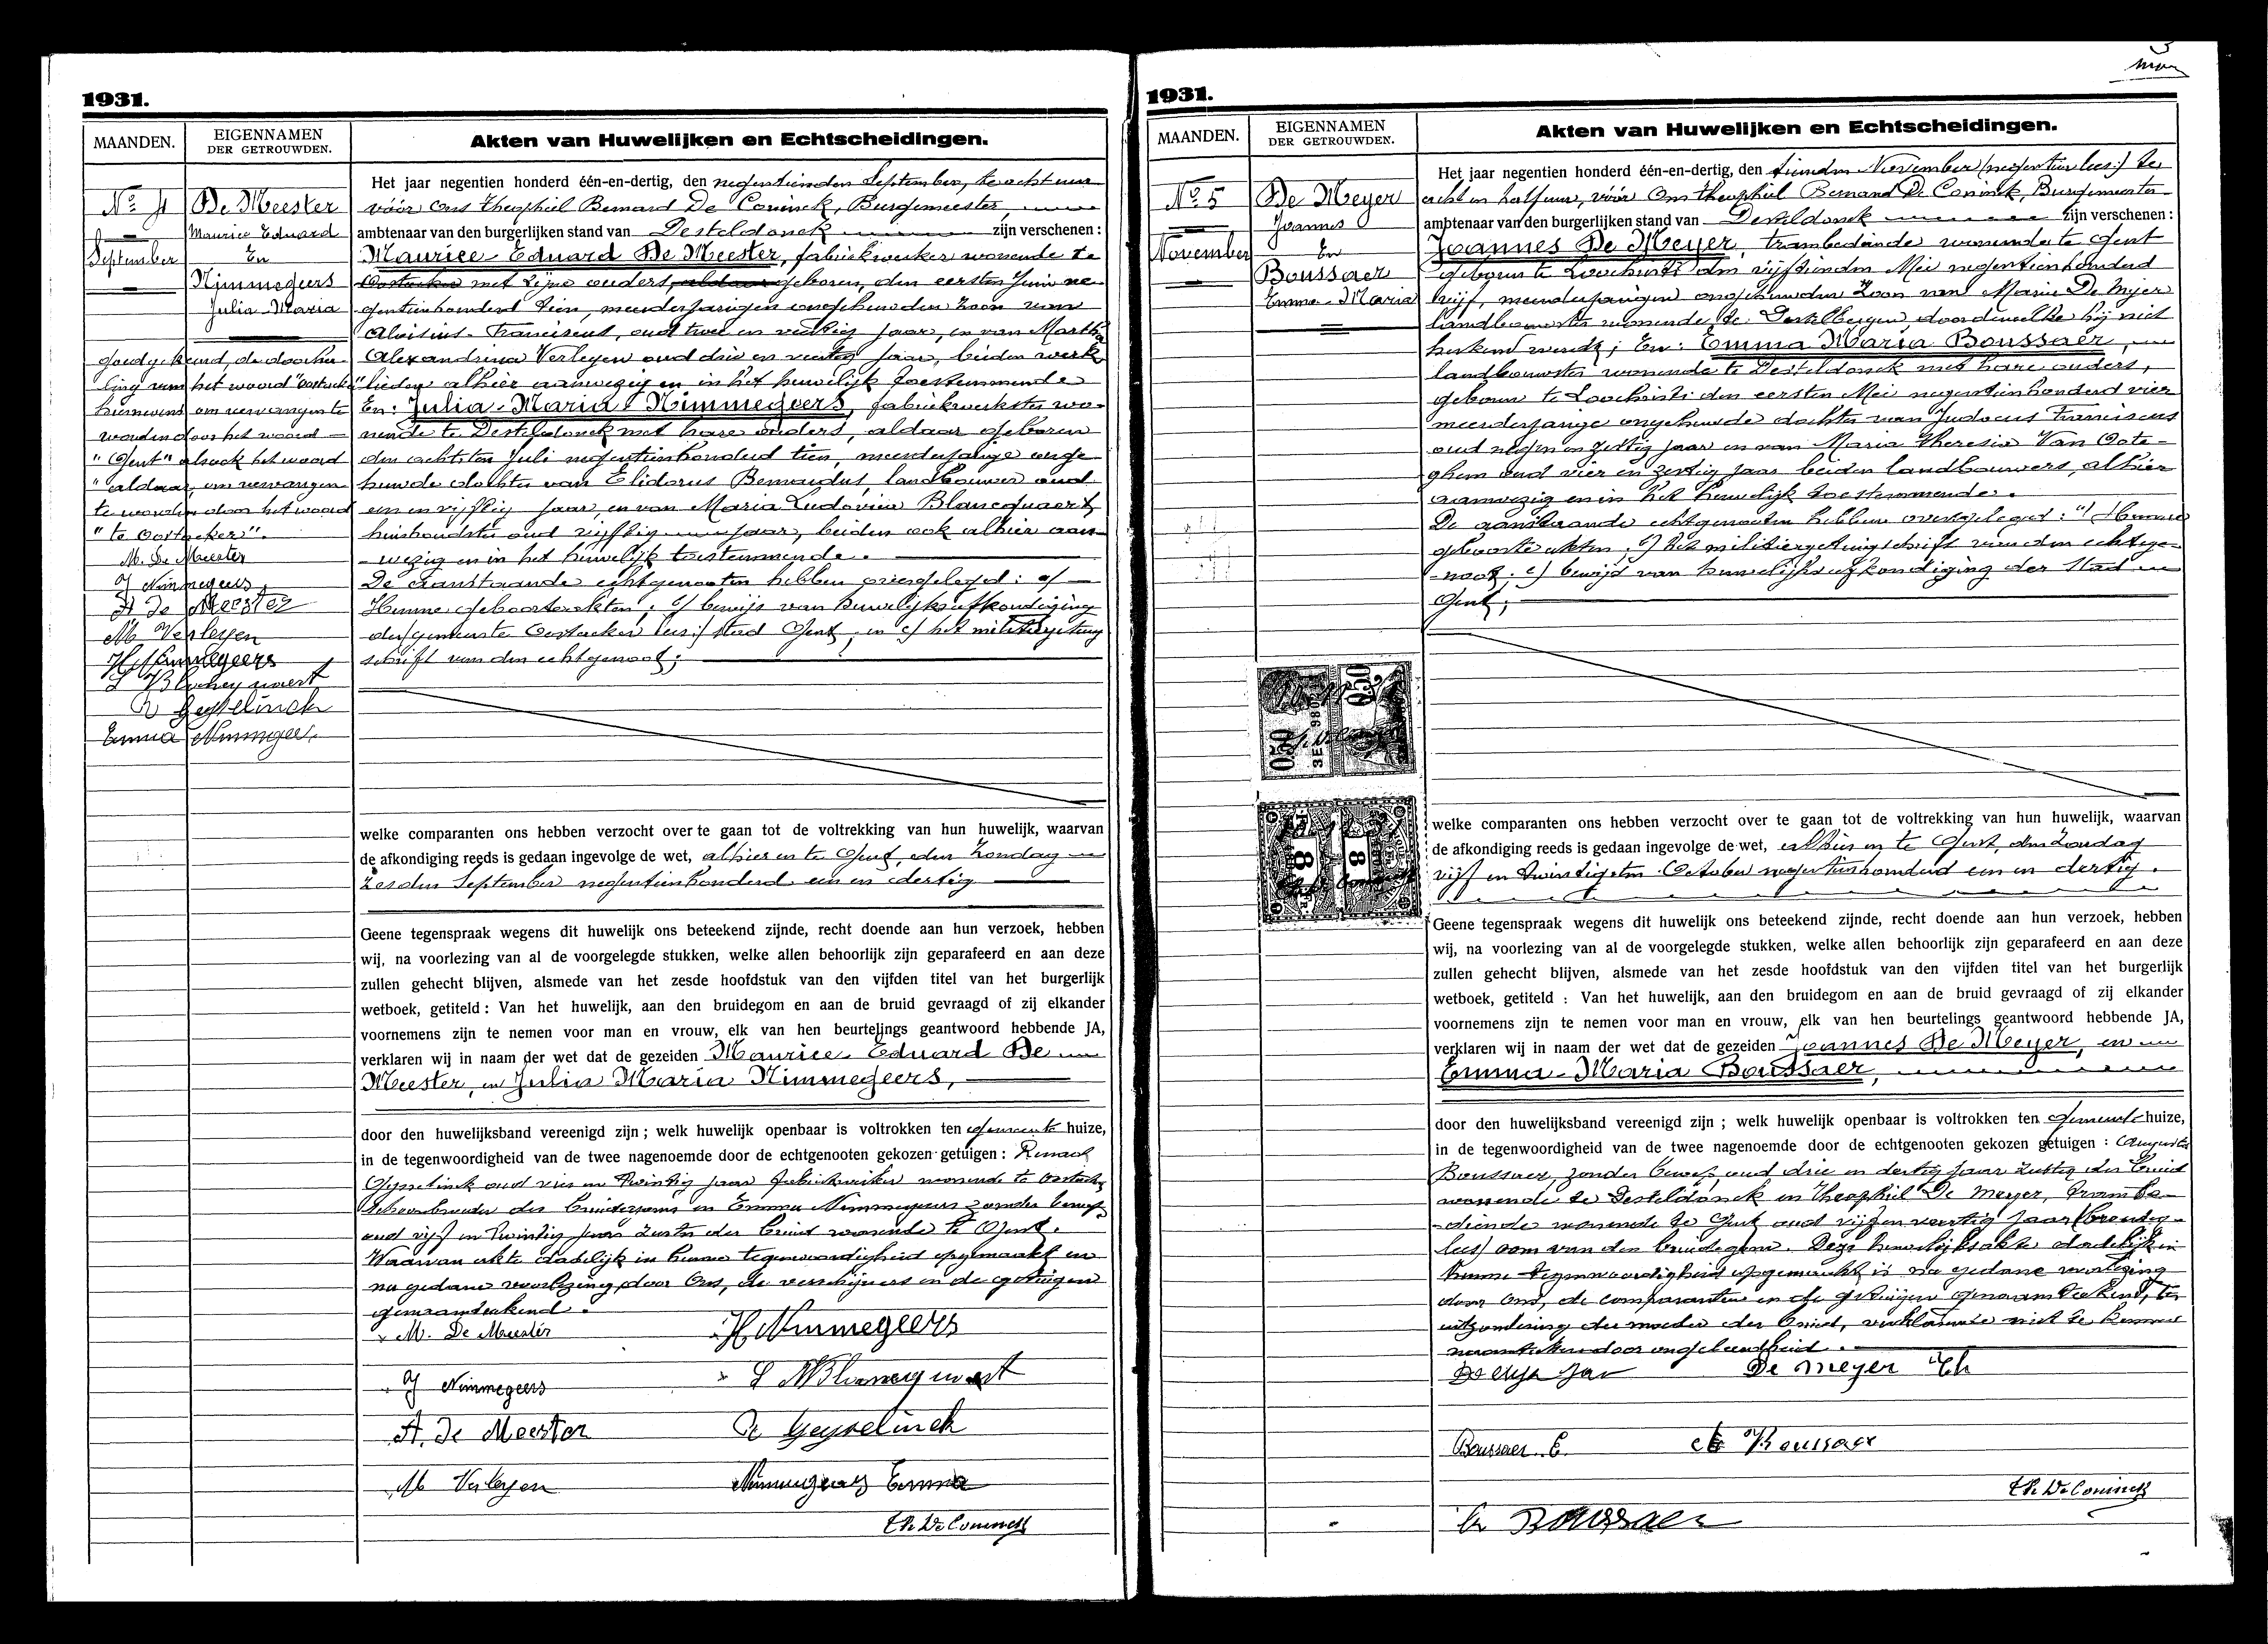 1931.
MAANDEN.
EIGENNAMEN
DER GETROUWDEN.
Akten van Huwelijken en Echtscheidingen.
No 4
September
De Meester
Maurice Eduard
En
Nimmegeers
Julia-Maria
goedgekeurd, de doorha-
ling van het woord "Oostacker"
hiernevens om vervangen te
worden door het woord —
"Gent" alsook het woord
"aldaar, om vervangen
te worden door het woord
"te Oostacker".
M. De Meester
J Nimmegeers
A De Meester
M Verleyen
H Nimmegeers
L Blancquaert
R Geysselinck
Emma Nimmegeers
Het jaar negentien honderd één-en-dertig, den negentienden September, te acht uur
vóór Ons Theophiel Bernard De Coninck, Burgemeester,
ambtenaar van den burgerlijken stand van Desteldonck zijn verschenen :
Maurice-Eduard De Meester, fabriekwerker wonende te
Oostacker met zijne ouders, aldaar geboren, den eersten Juni ne-
gentienhonderd tien, meerderjarigen ongehuwden zoon van
Aloisius-Franciscus, oud twee en veertig jaar, en van Martha
Alexandrina Verleyen oud drie en veertig jaar, beiden werk
lieden alhier aanwezig en in het huwelijk toestemmende
En: Julia-Maria Nimmegeers, fabriekwerkster wo-
nende te Desteldonck met hare ouders, aldaar geboren
den achtsten Juli negentienhonderd tien, meerderjarige onge-
huwde dochter van Elidorus Bernardus, landbouwer oud
een en vijftig jaar, en van Maria Ludovica Blancquaert,
huishoudster oud vijftig jaar, beiden ook alhier aan-
wezig en in het huwelijk toestemmende.
De aanstaande echtgenooten hebben overgelegd: a/ —
Hunne geboorteakten; b/ bewijs van huwelijksafkondiging
der/gemeente Oostacker lees:/ stad Gent; en c/ het militievergetuig
schrift van den echtgenoot;
welke comparanten ons hebben verzocht over te gaan tot de voltrekking van hun huwelijk, waarvan
de afkondiging reeds is gedaan ingevolge de wet, alhier en te Gent, den Zondag
zesden September negentienhonderd een en dertig
Geene tegenspraak wegens dit huwelijk ons beteekend zijnde, recht doende aan hun verzoek, hebben
wij, na voorlezing van al de voorgelegde stukken, welke allen behoorlijk zijn geparafeerd en aan deze
zullen gehecht blijven, alsmede van het zesde hoofdstuk van den vijfden titel van het burgerlijk
wetboek, getiteld : Van het huwelijk, aan den bruidegom en aan de bruid gevraagd of zij elkander
voornemens zijn te nemen voor man en vrouw, elk van hen beurtelings geantwoord hebbende JA,
verklaren wij in naam der wet dat de gezeiden Maurice-Eduard De
Meester, en Julia Maria Nimmegeers,
door den huwelijksband vereenigd zijn ; welk huwelijk openbaar is voltrokken ten gemeente huize,
in de tegenwoordigheid van de twee nagenoemde door de echtgenooten gekozen getuigen :
Gysselinck oud vier en twintig jaar fabriekwerker wonende te Oostacker
schoonbroeder des bruidegoms en Emma Nimmegeers zonder beroep
oud vijf en twintig jaar zuster der bruid wonende te Gent.
Waarvan akte dadelijk in hunne tegenwoordigheid opgemaakt en
na gedane voorlezing door Ons, de verschijners en de getuigen
genaamteekend.
M. De Meester
H Nimmegeers
J Nimmegeers
L Blancquaert
A. De Meester
R Geysselinck
M Verleyen
Nimmegeers Emma
Th. De Coninck
1931.
MAANDEN.
EIGENNAMEN
DER GETROUWDEN.
Akten van Huwelijken en Echtscheidingen.
No 5
November
De Meyer
Joannes
En
Boussaer
Emma-Maria
Het jaar negentien honderd één-en-dertig, den tienden November (negentien lees:) te
acht en half uur, vóór Ons Theophiel Bernard De Coninck, Burgemeester
ambtenaar van den burgerlijken stand van Desteldonck zijn verschenen :
Joannes De Meyer, trambediende wonende te Gent
geboren te Loochristi den vijftienden Mei negentienhonderd
vijf, meerderjarigen ongehuwden zoon van Maria De Meyer
landbouwster wonende te Destelbergen door dewelke hij niet
herkend werdt; En: Emma Maria Boussaer,
landbouwster wonende te Desteldonck met hare ouders,
geboren te Loochristi den eersten Mei negentienhonderd vier
meerderjarige ongehuwde dochter van Judocus Franciscus
oud negen en zestig jaar en van Maria Theresia Van Oote-
ghem oud vier en zestig jaar beiden landbouwers, alhier
aanwezig en in het huwelijk toestemmende.
De aanstaande echtgenooten hebben overgelegd: a/ Hunne
geboorte akten; b/ het militievergetuigschrift van den echtge-
noot; c/ bewijs van huwelijksafkondiging der Stad
Gent;
0.50
0.50
8
8
welke comparanten ons hebben verzocht over te gaan tot de voltrekking van hun huwelijk, waarvan
de afkondiging reeds is gedaan ingevolge de wet, alhier en te Gent, den Zondag
vijf en twintigsten October negentienhonderd een en dertig.
Geene tegenspraak wegens dit huwelijk ons beteekend zijnde, recht doende aan hun verzoek, hebben
wij, na voorlezing van al de voorgelegde stukken, welke allen behoorlijk zijn geparafeerd en aan deze
zullen gehecht blijven, alsmede van het zesde hoofdstuk van den vijfden titel van het burgerlijk
wetboek, getiteld : Van het huwelijk, aan den bruidegom en aan de bruid gevraagd of zij elkander
voornemens zijn te nemen voor man en vrouw, elk van hen beurtelings geantwoord hebbende JA,
verklaren wij in naam der wet dat de gezeiden Joannes De Meyer, en
Emma-Maria Boussaer,
door den huwelijksband vereenigd zijn ; welk huwelijk openbaar is voltrokken ten gemeente huize,
in de tegenwoordigheid van de twee nagenoemde door de echtgenooten gekozen getuigen : Augusta
Boussaer, zonder beroep, oud drie en dertig jaar zuster der bruid
wonende te Desteldonck en Theophiel De Meyer, trambe-
diende wonende te Gent oud vijf en veertig jaar
lees/ oom van den bruidegom. Deze huwelijksakte dadelijk in
hunne tegenwoordigheid opgemaakt is na gedane voorlezing
door Ons, de comparanten en de getuigen genaamteekend, ter
uitzondering der moeder der bruid, verklarende niet te kunnen
naamteekenen door ongeleerdheid.
De Meyer Th
Boussaer E.
Boussaer
Th. De Coninck
Boussaer